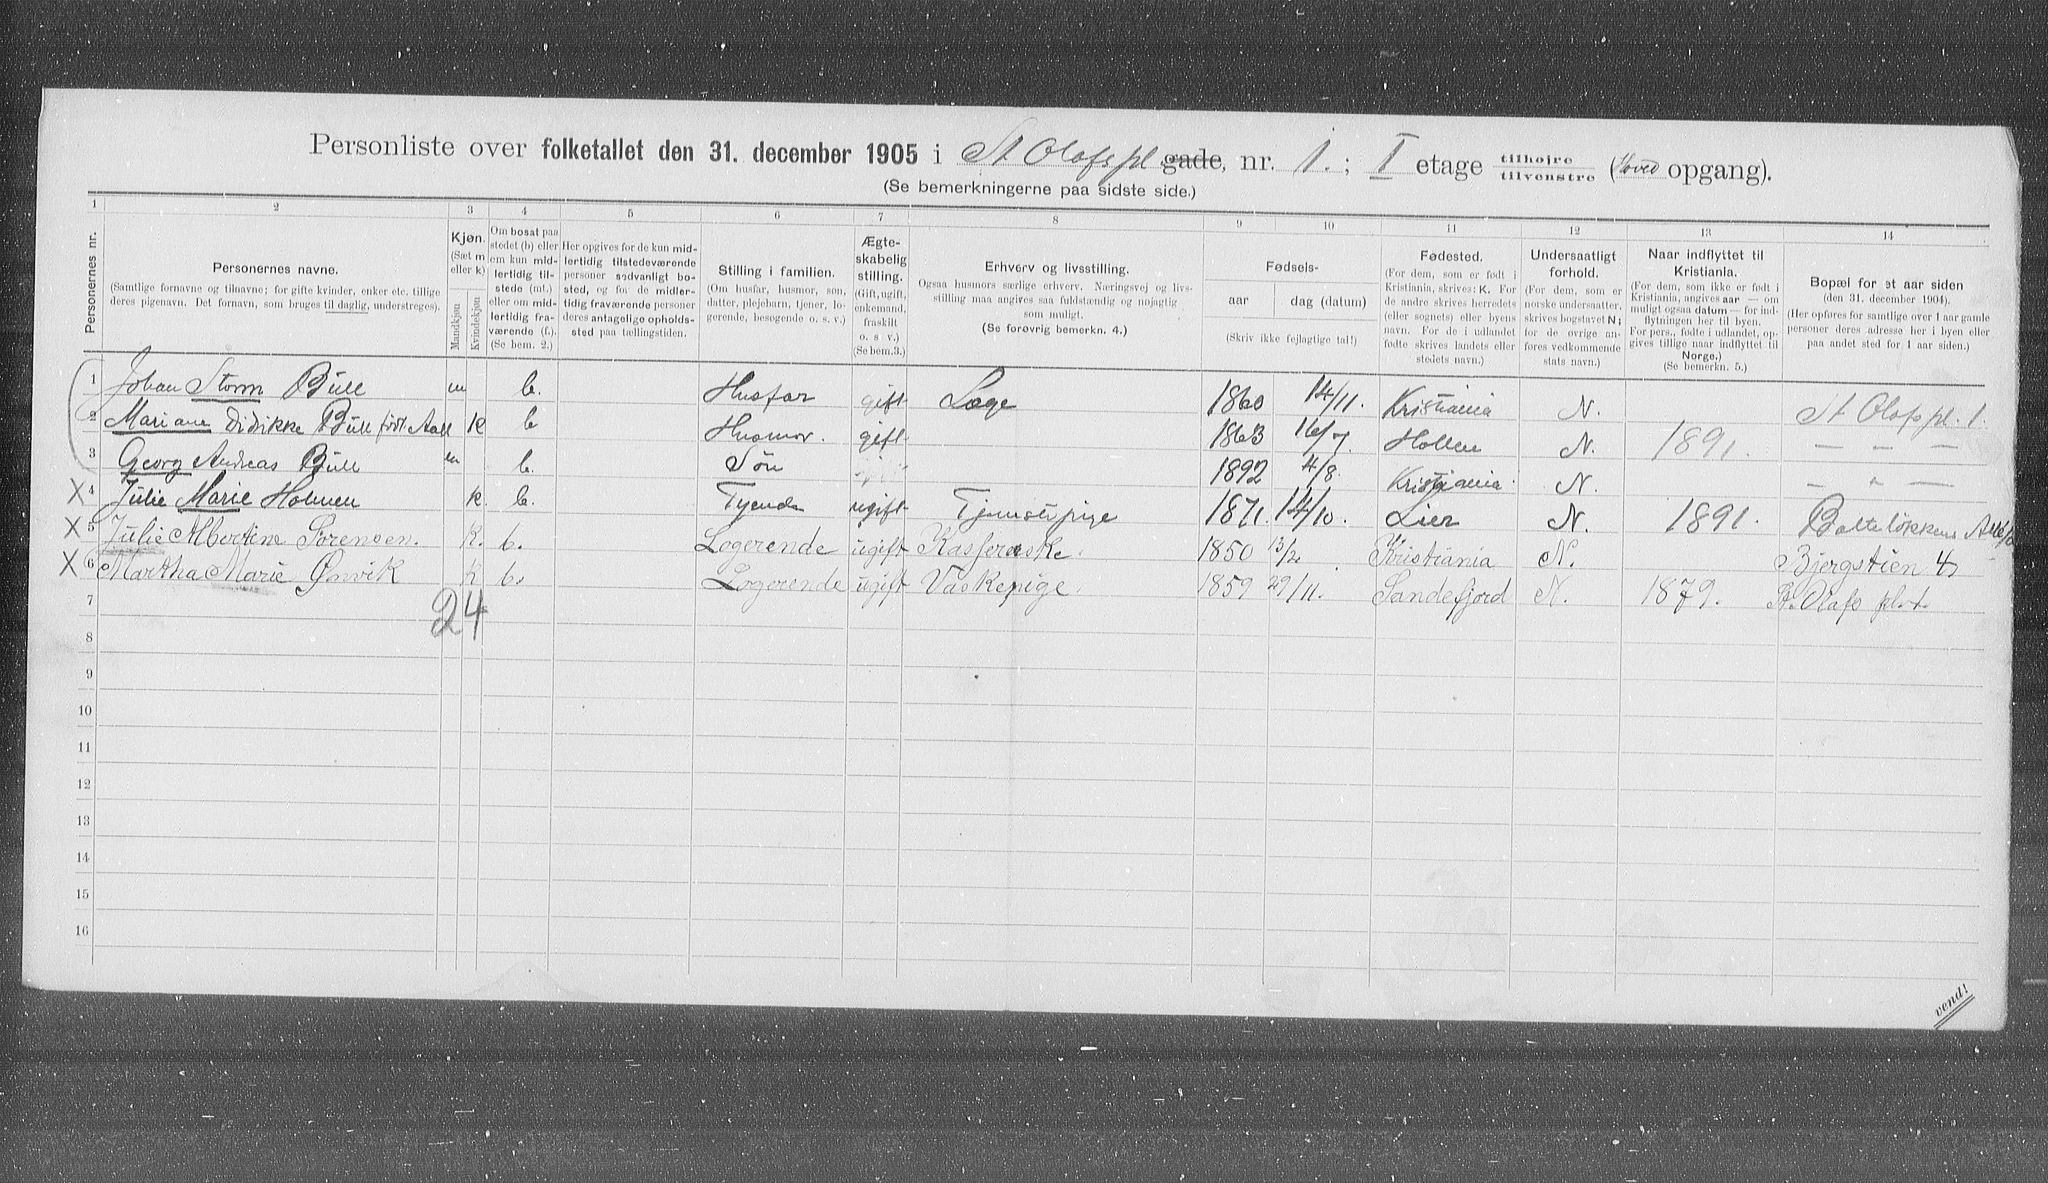 Personliste over folketallet den 31. december 1905 i St Olafs pl gade, nr. 1.; I etage tilhøjre tilvenstre (Hoved opgang).
(Se bemerkningerne paa sidste side.)
1 2 3 4 5 6 7 8 9 10 11 12 13 14
Personernes nr.
Personernes navne.
(Samtlige fornavne og tilnavne; for gifte kvinder, enker etc. tillige deres pigenavn. Det fornavn, som bruges til daglig, understreges).
Kjøn. (Sæt m eller k)
Mandkjøn Kvindekjøn
Om bosat paa stedet (b) eller om kun midlertidig tilstede (mt.) eller om midlertidig fraværende (f.). (Se bem. 2.)
Her opgives for de kun midlertidig tilstedeværende personer sædvanligt bosted, og for de midlertidig fraværende personer deres antagelige opholdssted paa tællingstiden.
Stilling i familien.
(Om husfar, husmor, søn, datter, plejebarn, tjener, logerende, besøgende o. s. v.)
Ægteskabelig stilling.
(Gift, ugift, enkemand, fraskilt o. s v.) (Se bem. 3.)
Erhverv og livsstilling.
Ogsaa husmors særlige erhverv. Næringsvej og livsstilling maa angives saa fuldstændig og nøjagtig som muligt.
(Se forøvrig bemerkn. 4.)
Fødsels-
aar dag (datum)
(Skriv ikke fejlagtige tal!)
Fødested.
(For dem, som er født i Kristiania, skrives: K. For de andre skrives herredets (eller sognets) eller byens navn. For de i udlandet fødte skrives landets eller stedets navn.)
Undersaatligt forhold.
(For dem, som er norske undersaatter, skrives bogstavet N; for de øvrige anføres vedkommende stats navn.)
Naar indflyttet til Kristiania.
(For dem, som ikke er født i Kristiania, angives aar — om muligt ogsaa datum — for indflytningen her til byen. For pers., fødte i udlandet, opgives tillige naar indflyttet til Norge.) (Se bemerkn. 5.)
Bopæl for et aar siden
(den 31. december 1904).
(Her opføres for samtlige over 1 aar gamle personer deres adresse her i byen eller paa andet sted for 1 aar siden.)
1 Johan Storm Bull m b. Husfar gift Læge 1860 14/11. Kristiania N. St Olafs pl. 1.
2 Mariane Didikke Bull født Aall k b Husmor. gift 1863 16/7 Hollen N. 1891. — — —
3 Georg Andreas Bull m b. Søn 1892 4/8. Kristiania. N. — " —
X 4 Julie Marie Holmen k. b. Tyende ugift Tjenestepige 1871. 14/10. Lier N. 1891. Balteløkkens
X 5 Julie Albertine Sørensen. K. b. Logerende ugift 1850 13/2. Kristiania N. Bjergstien
X 6 Martha Marie K b. Logerende ugift Vaskepige. 1859 29/11. Sandefjord N. 1879. St. Olafs pl. 1.
24
7
8
9
10
11
12
13
14
15
16
vend!